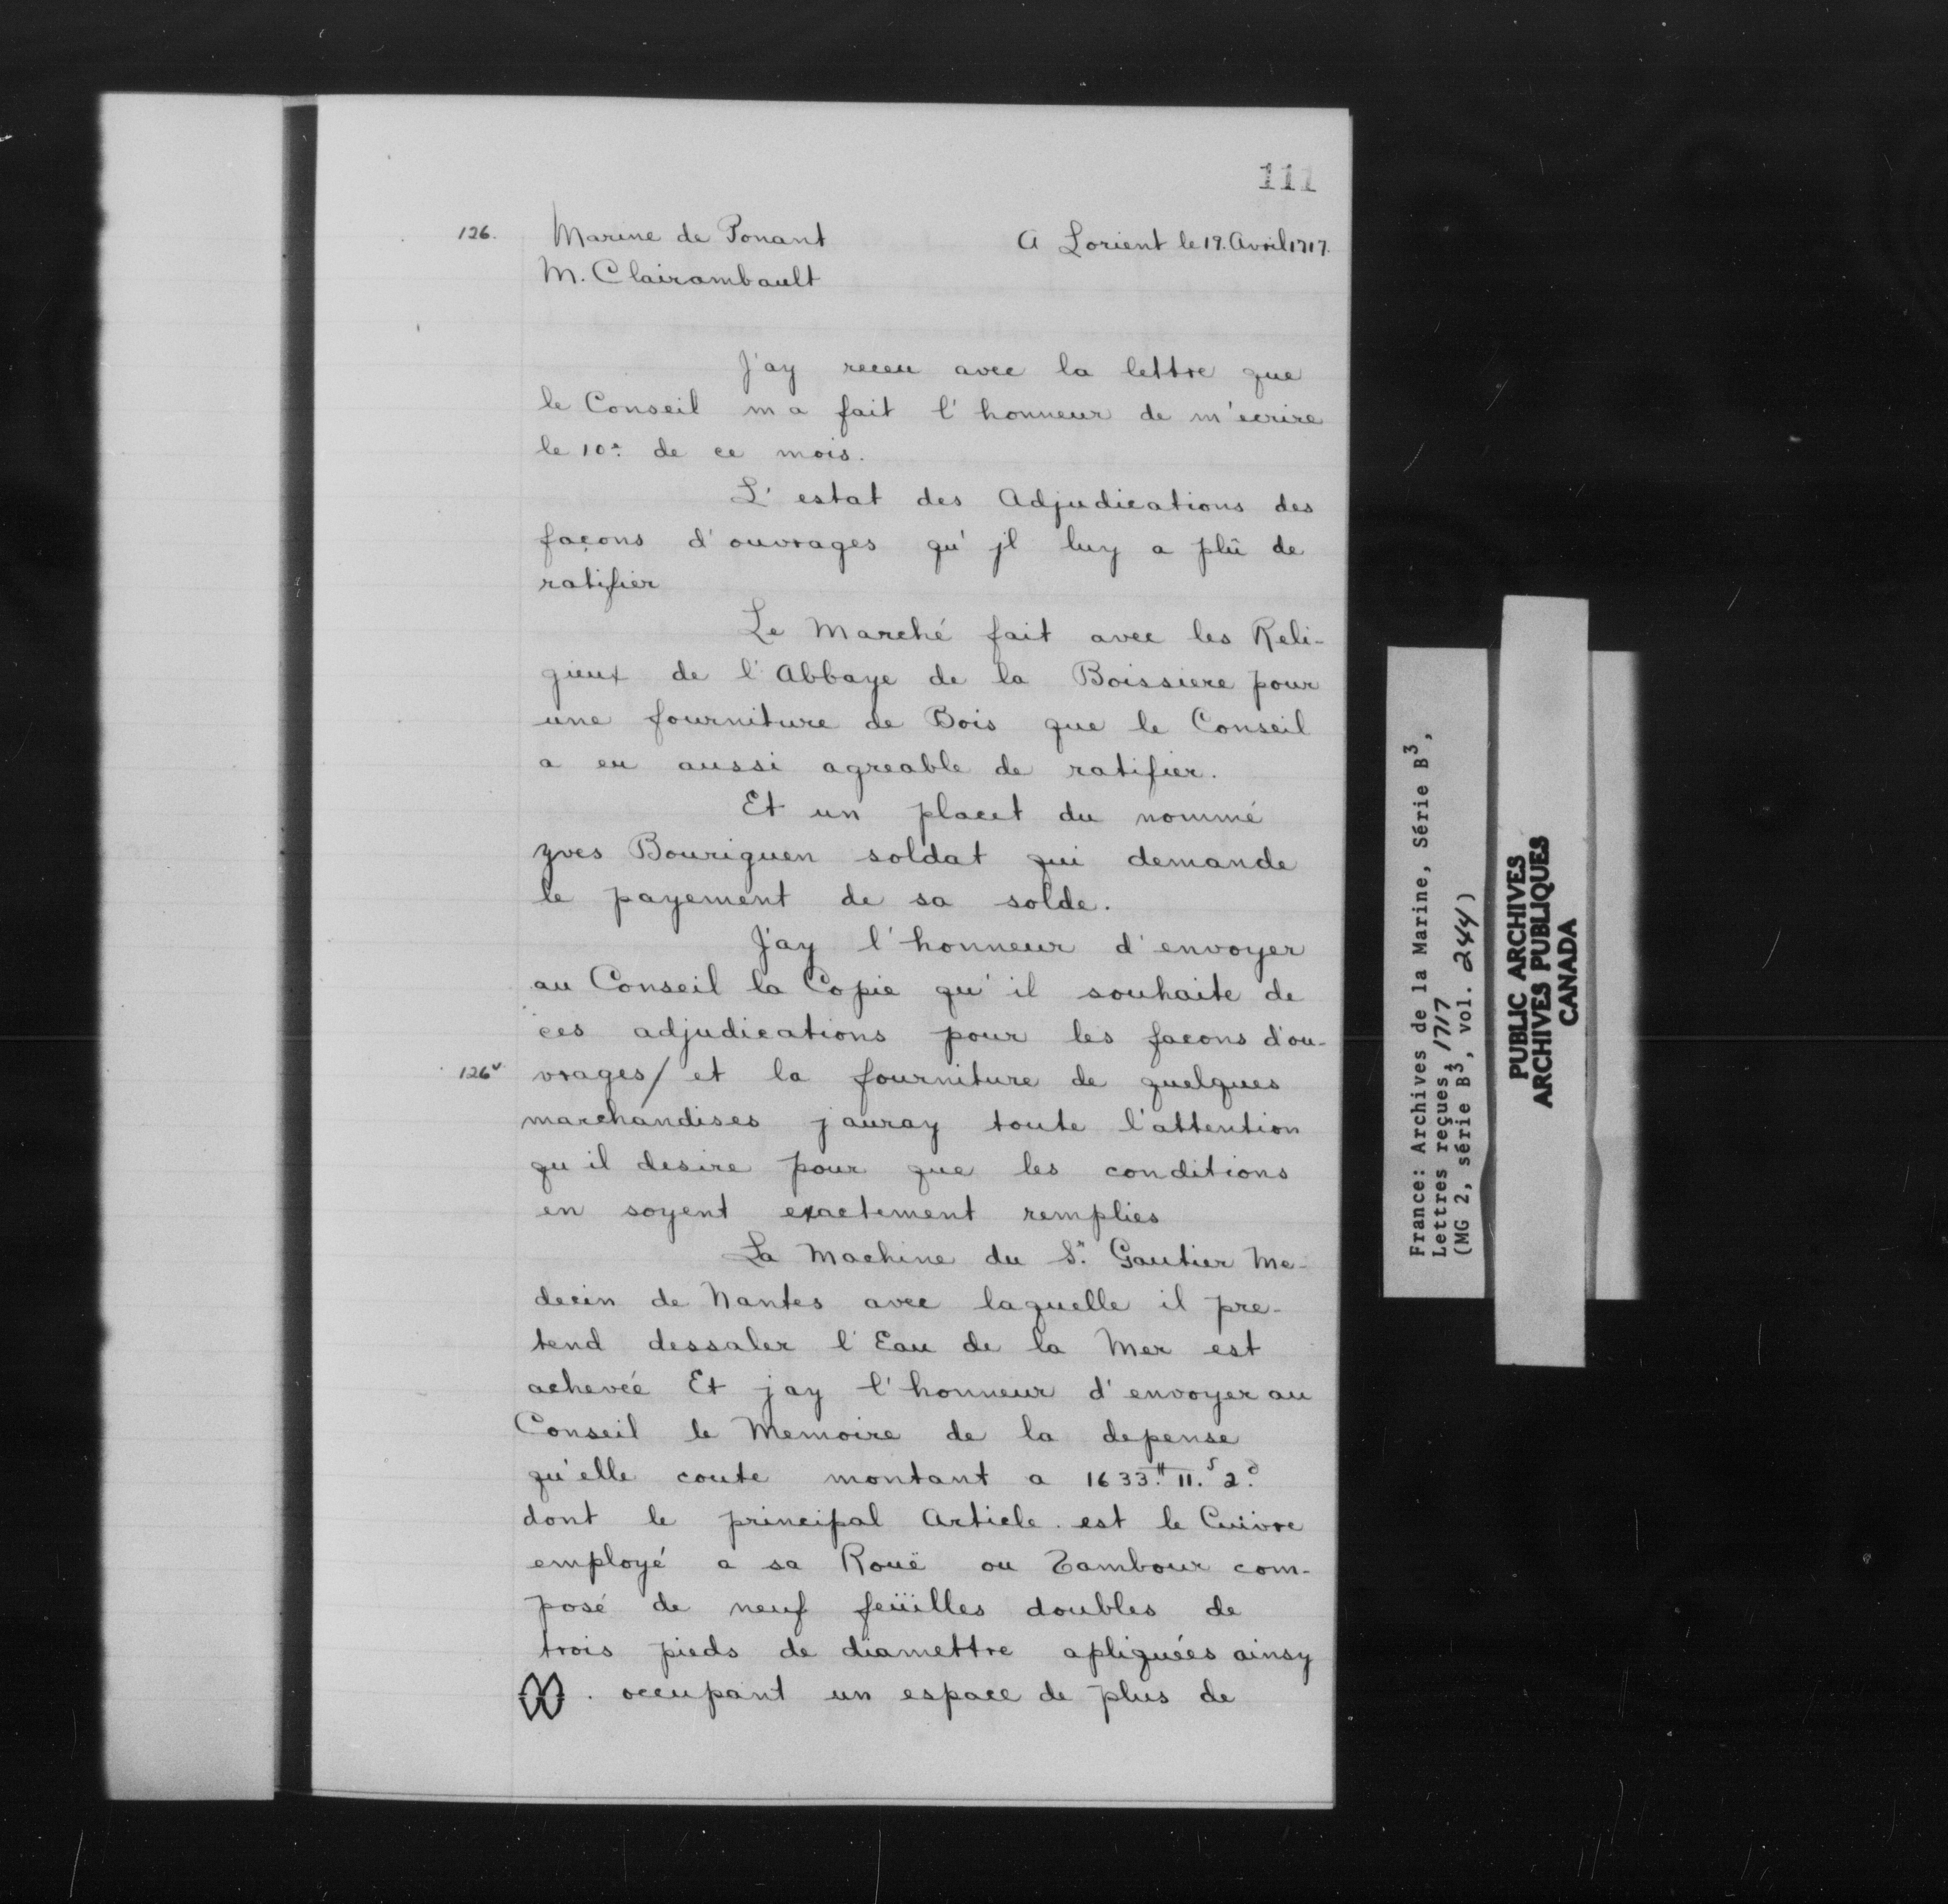 111
126. Marine de Ponant A Lorient le 19. Avril 1717.
M. Clairambault
J'ay receu avec la lettre que
le Conseil m a fait l'honneur de m'ecrire
le 10e. de ce mois.
L'estat des Adjudications des
façons d'ouvrages qu'jl luy a plû de
ratifier
Le Marché fait avec les Reli-
gieux de l'Abbaye de la Boissiere pour
une fourniture de Bois que le Conseil
a eu aussi agreable de ratifier.
Et un placet du nommé
yves Bouriguen soldat qui demande
le payement de sa solde.
J'ay l'honneur d'envoyer
au Conseil la Copie qu'il souhaite de
ces adjudications pour les facons d'ou-
126v vrages/ et la fourniture de quelques
marchandises j auray toute l'attention
qu il desire pour que les conditions
en soyent exactement remplies
La Machine du Sr. Gautier Me-
decin de Nantes avec laquelle il pre-
tend dessaler l'Eau de la Mer est
achevée Et jay l'honneur d'envoyer au
Conseil le Memoire de la depense
qu'elle coute montant a 1633.# 11.s 2.d
dont le principal Article. est le Cuivre
employé a sa Rouë ou Tambour com-
posé de neuf feüilles doubles de
trois pieds de diamettre apliquées ainsy
. occupant un espace de plus de
France: Archives de la Marine, Série B3,
Lettres reçues, 1717
(MG 2, série B3, vol. 244)
PUBLIC ARCHIVES
ARCHIVES PUBLIQUES
CANADA